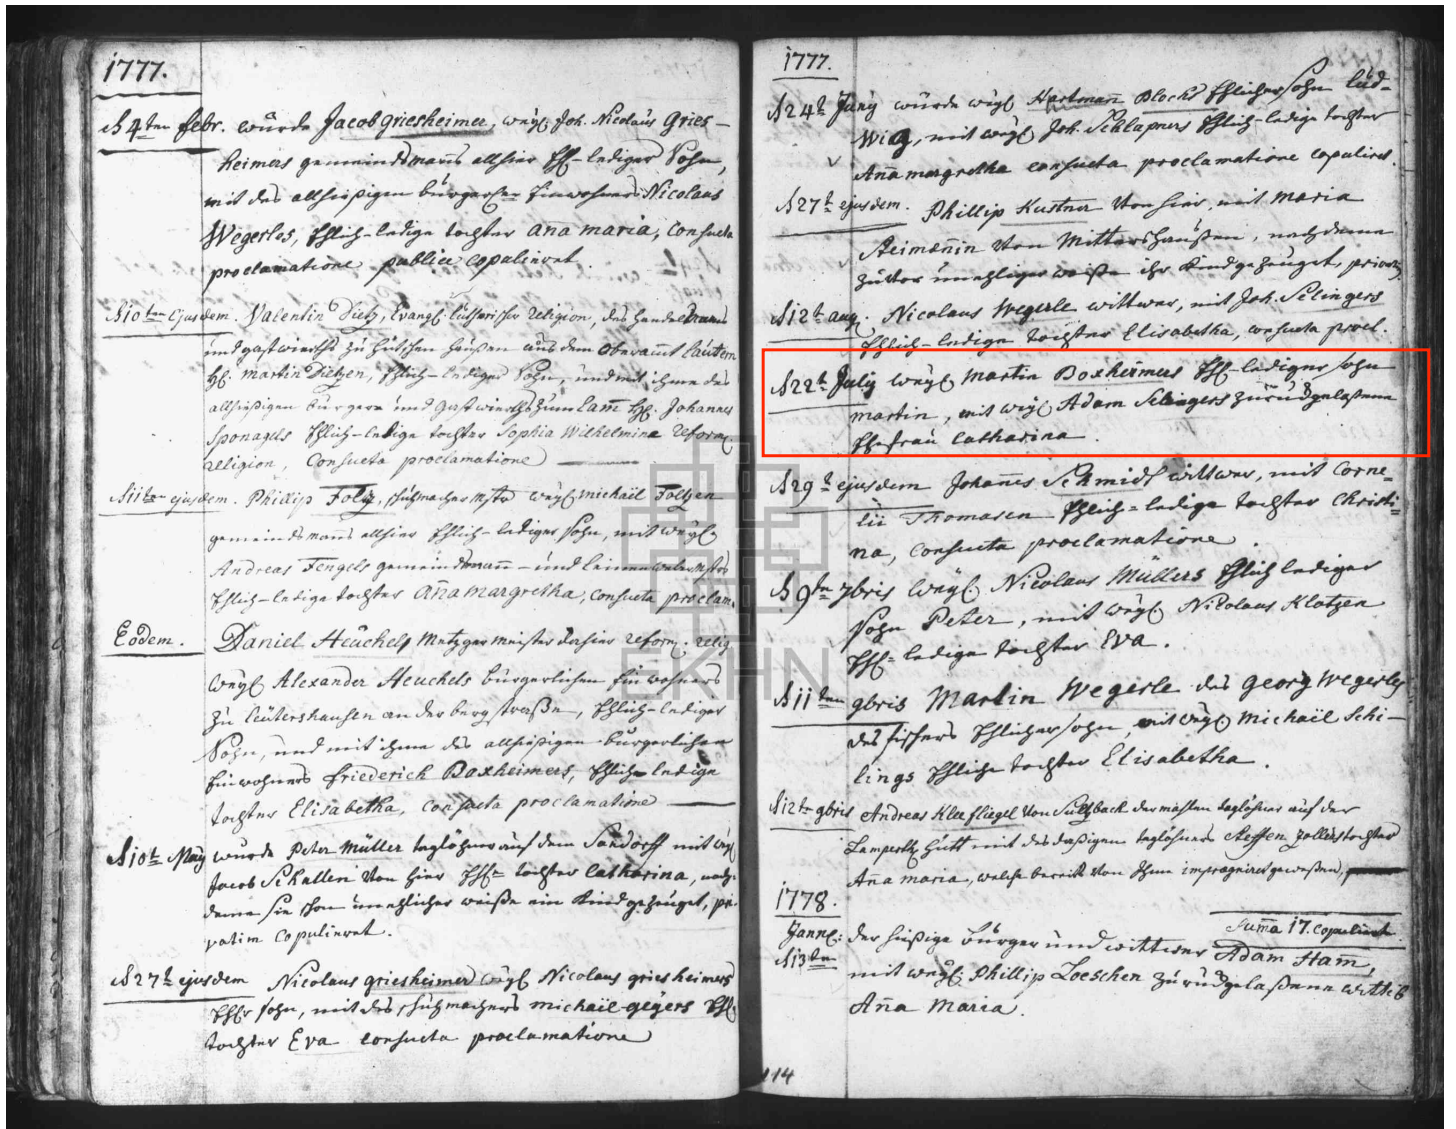 1777.
d 4ten febr. wurde Jacob Griesheimer, weyl. Joh. Nicolaus Gries-
heimers gemeindsmanns allhier Ehl-lediger Sohn,
mit des allhießigen bürgerl. Einwohners Nicolaus
Wegerles, Ehlich-ledige tochter Aña Maria, consueta
proclamatione publice copuliret.
d 10ten ejusdem. Valentin Dietz, Evangl. Lutherischer religion, des handelsmanns
und gastwirths zu Hütschenhaußen aus dem Oberamt Lautern
H. Martin Dietzen, Ehlich-lediger Sohn, und mit ihme des
allhießigen bürgers und gastwirths zum Lam̃ H. Johannes
Sponagels Ehlich-ledige tochter Sophia Wilhelmina reform.
religion, consueta proclamatione
d 11ten ejusdem. Phillip Foltz, schuhmacher Mstr weyl. Michaël Foltzen
gemeindsmanns allhier Ehlich-lediger sohn, mit weyl.
Andreas Fengels gemeindsmann- und leinenweber Mstrs
Ehlich-ledige tochter Aña Margretha, consueta proclam.
Eodem. Daniel Heuchels Metzgermeister dahier reform. relig
weyl. Alexander Heuchels bürgerlichen Einwohners
zu Leutershausen an der bergstraße, Ehlich-lediger
Sohn, und mit ihme des allhießigen bürgerlichen
Einwohners Friederich Boxheimers, Ehlich-ledige
tochter Elisabetha, consueta proclamatione
d 10t May wurde Peter Müller taglöhner auf dem Sandorff mit weyl.
Jacob Schallen von hier Ehl. tochter Catharina, nach-
deme sie schon unehlicher weiße ein Kind gezeuget, pri-
vatim copuliret.
d 27t ejusdem Nicolaus Griesheimer weyl. Nicolaus Griesheimers
Ehlr sohn, mit des schuhmachers Michaël Geÿers Ehl.
tochter Eva consueta proclamatione
1777.
d 24t Juny wurde weyl. Hartmann Blochs Ehlicher sohn Lud-
wig, mit weyl. Joh. Schlapners Ehlich-ledige tochter
Aña Margretha consueta proclamatione copuliret.
d 27t ejusdem. Phillip Kustner von hier, mit Maria
Steimeñin von Mittershaußen, nachdeme
zuvor unehliger weiße ihr Kind gezeuget, privatim
d 12t aug. Nicolaus Wegerle wittwer, mit Joh. Selingers
Ehlich-ledige tochter Elisabetha, consueta procl.
d 22t July weyl. Martin Boxheimers Ehl-lediger sohn
Martin, mit weyl. Adam Selingers zurückgelaßene
Ehefrau Catharina.
d 29t ejusdem Johañes Schmidt wittwer, mit Corne=
lii Thomasen Ehlich-ledige tochter Christi=
na, consueta proclamatione.
d 9tn 7bris weyl. Nicolaus Müllers Ehlich lediger
sohn Peter, mit weyl. Nicolaus Klotzen
Ehl-ledige tochter Eva.
d 11ten 9bris Martin Wegerle des Georg Wegerles
des fischers Ehlicher sohn, mit weyl. Michaël Schi-
lings Ehliche tochter Elisabetha.
d 12tn 9bris Andreas Kleefliegel von Sultzbach dermahlen taglöhner auf der
Lampertz hütt mit des dasigen taglöhners Steffen Zollers tochter
Aña Maria, welche bereits von Ihme impragnirt geweßen,
Suma 17. copuliret
1778.
Janr: der hießige Bürger und wittwer Adam Ham̃,
d 13ten mit weyl. Phillip Loeschen zurückgelaßene wittib
Aña Maria.
114
EKHN